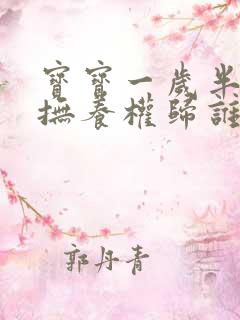 寶寶一歲半
撫養權歸誰
郭丹青